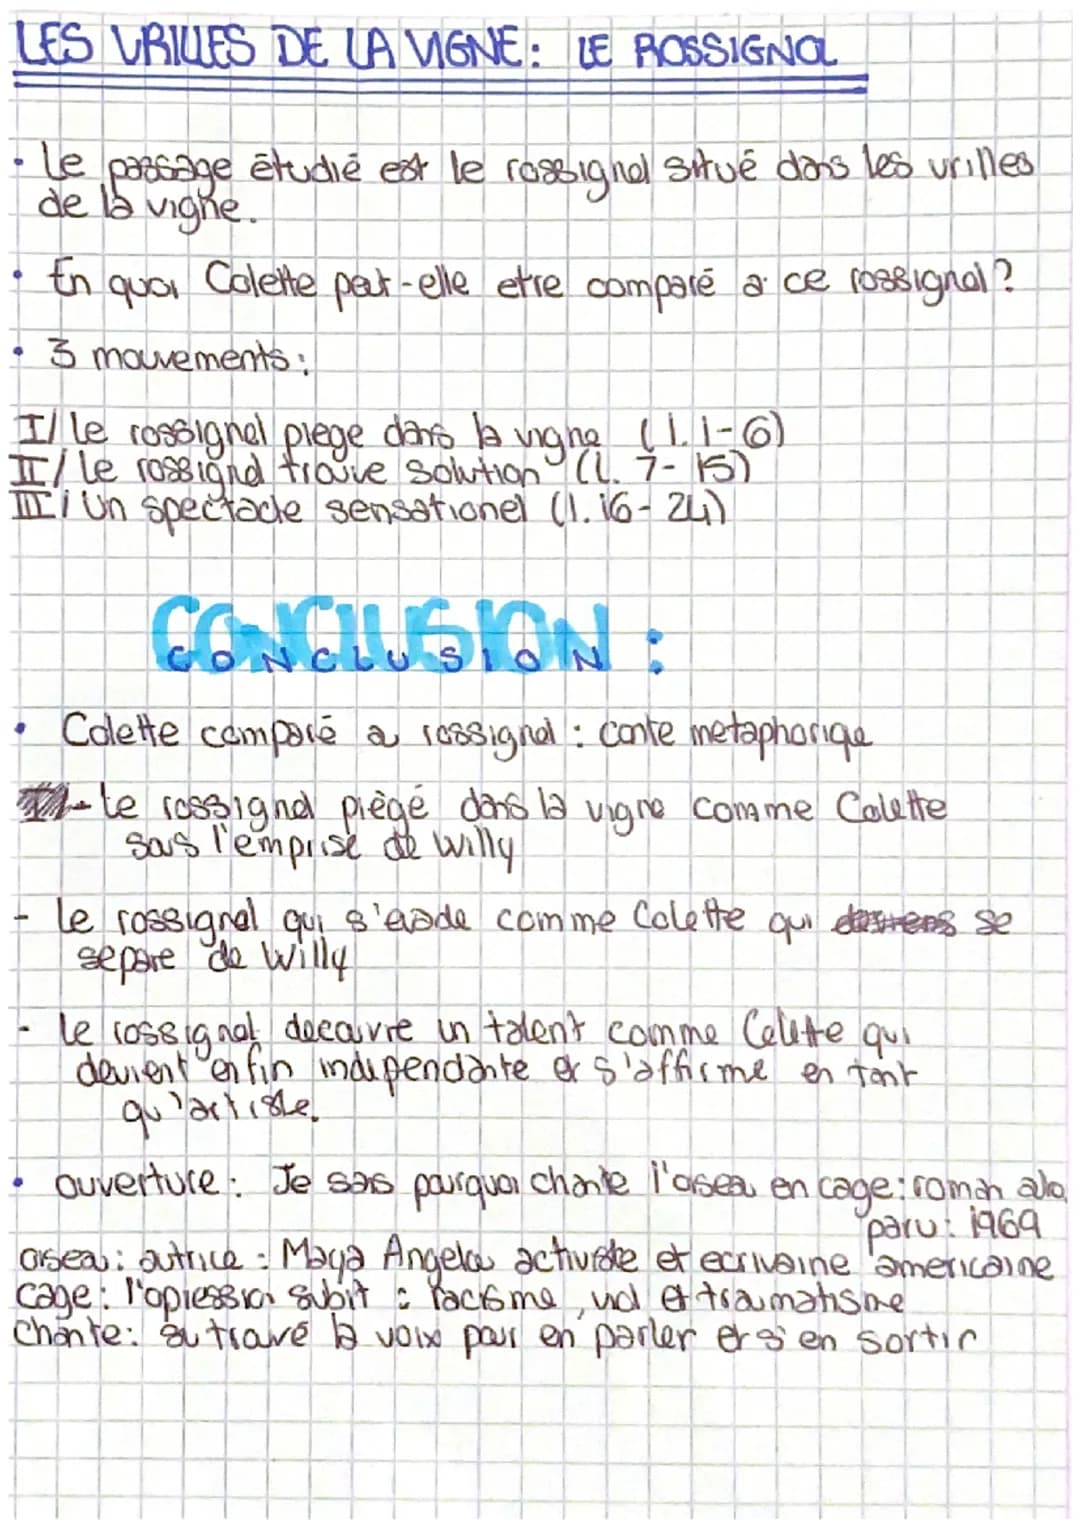 LES VRILLES DE LA VIGNE : LE ROSSIGNOL
• le passage étudié est le rossignol situé dans les vrilles
de la vigne.
• En quoi Colette peut-elle etre comparé a ce rossignol ?
• 3 mouvements :
I/ le rossignol piege dans la vigne (l. 1-6)
II/ le rossignol trouve solution (l. 7-15)
III/ Un spectacle sensationel (l. 16-24)
CONCLUSION :
CONCLUSION
• Colette comparé a rossignol : conte metaphorique
- le rossignol piègé dans la vigne comme Colette
sous l'emprise de Willy
- le rossignol qui s'evade comme Colette qui se
separe de Willy
- le rossignol decouvre un talent comme Colette qui
devient enfin independante et s'affirme en tant
qu'artiste.
• ouverture : Je sais pourquoi chante l'oiseau en cage : roman auto
paru : 1969
oiseau : autrice : Maya Angelou activiste et ecrivaine americaine
cage : l'opression subit : racisme, viol et traumatisme
chante : a trouvé la voix pour en parler et s'en sortir